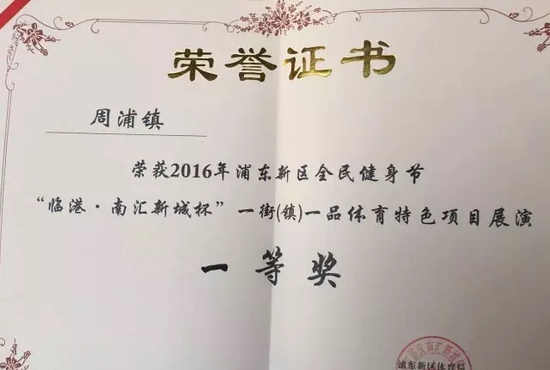 荣誉证书
周浦镇
荣获2016年浦东新区全民健身节
“临港·南汇新城杯”一街(镇)一品体育特色项目展演
一等奖
区南汇新
浦东新区体育局